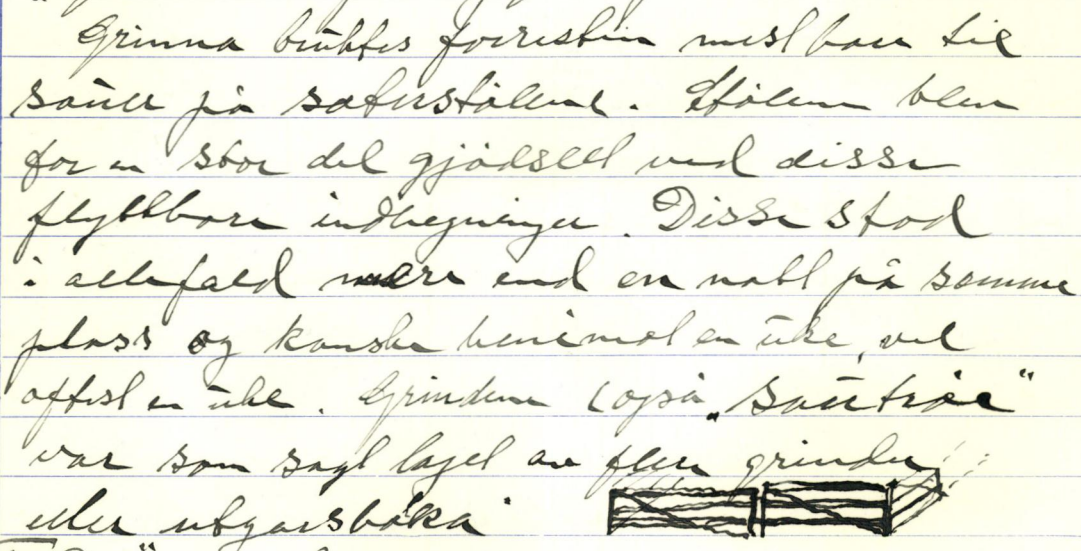 Grinna brukfes forresten mest bare til
sauer på sæterstølene. Stølene blev
for en stor del gjødslet ved disse
flyttbare indhegninger. Disse stod
i allefald mere end en natt på samme
plass og kanske henimot en uke, vel
oftest en uke. Grindene (også „sautræe"
var som sagt laget av flere grinder
eller utgarsbåka